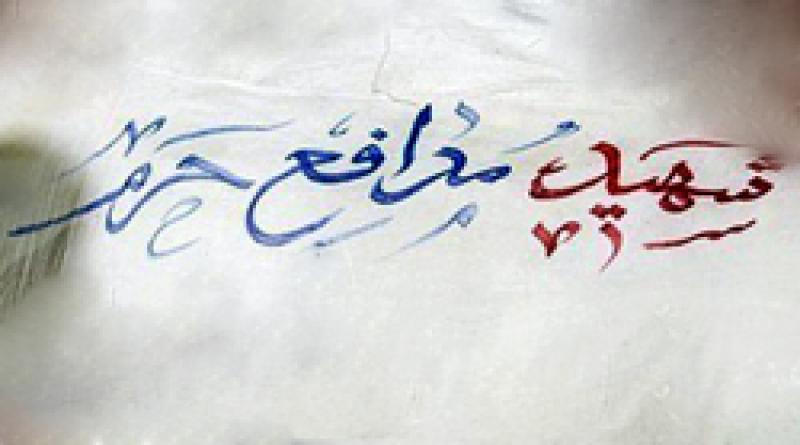 شهید مدافع حرم